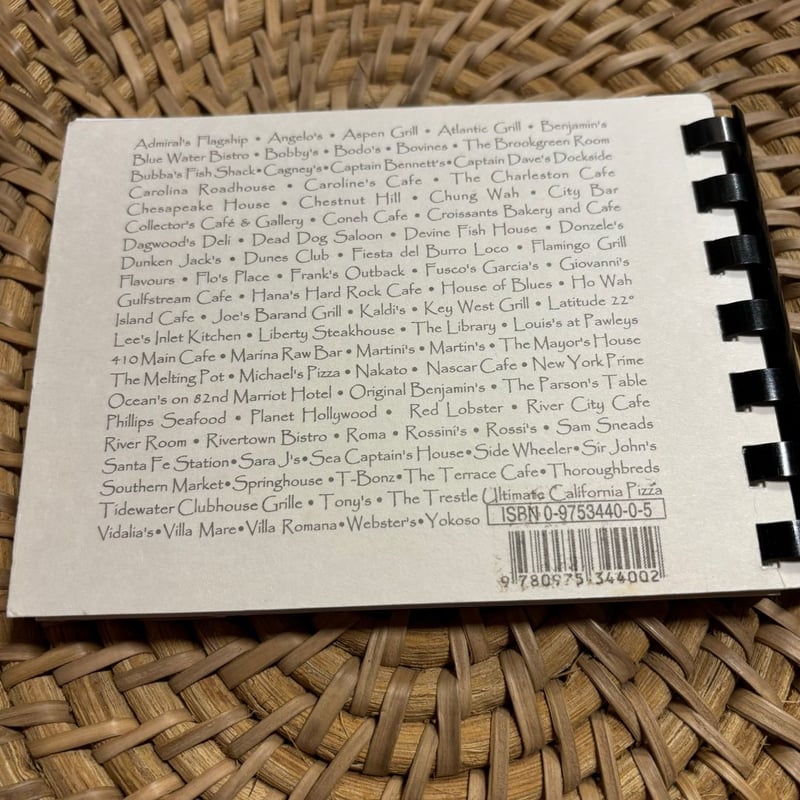 Admiral's Flagship • Angelo's • Aspen Grill • Atlantic Grill • Benjamin's
Blue Water Bistro • Bobby's • Bodo's • Bovines • The Brookgreen Room
Bubba's Fish Shack•Cagney's•Captain Bennett's•Captain Dave's Dockside
Carolina Roadhouse • Caroline's Cafe • The Charleston Cafe
Chesapeake House • Chestnut Hill • Chung Wah • City Bar
Collector's Café & Gallery • Coneh Cafe • Croissants Bakery and Cafe
Dagwood's Deli • Dead Dog Saloon • Devine Fish House • Donzele's
Dunken Jack's • Dunes Club • Fiesta del Burro Loco • Flamingo Grill
Flavours • Flo's Place • Frank's Outback • Fusco's Garcia's • Giovanni's
Gulfstream Cafe • Hana's Hard Rock Cafe • House of Blues • Ho Wah
Island Cafe • Joe's Barand Grill • Kaldi's • Key West Grill • Latitude 22°
Lee's Inlet Kitchen • Liberty Steakhouse • The Library • Louis's at Pawleys
410 Main Cafe • Marina Raw Bar • Martini's • Martin's • The Mayor's House
The Melting Pot • Michael's Pizza • Nakato • Nascar Cafe • New York Prime
Ocean's on 82nd Marriot Hotel • Original Benjamin's • The Parson's Table
Phillips Seafood • Planet Hollywood • Red Lobster • River City Cafe
River Room • Rivertown Bistro • Roma • Rossini's • Rossi's • Sam Sneads
Santa Fe Station•Sara J's•Sea Captain's House•Side Wheeler•Sir John's
Southern Market•Springhouse •T-Bonz•The Terrace Cafe•Thoroughbreds
Tidewater Clubhouse Grille • Tony's • The Trestle Ultimate California Pizza
Vidalia's•Villa Mare•Villa Romana•Webster's•Yokoso
ISBN 0-9753440-0-5
9 780975 344002